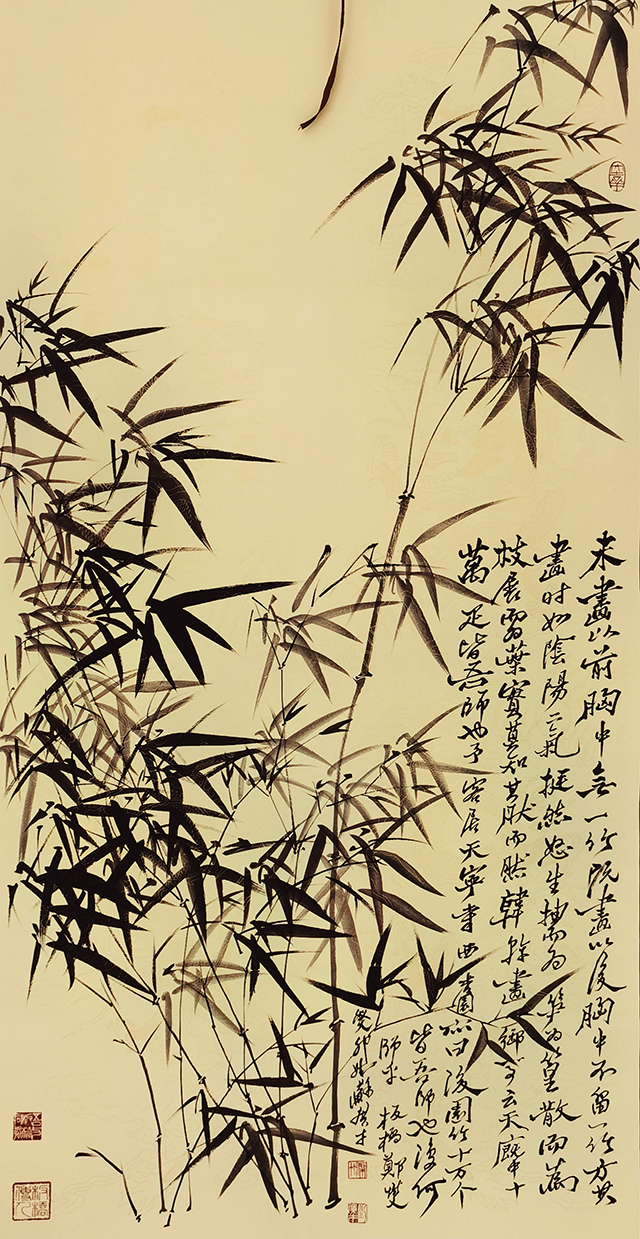 未畫以前胸中无一竹既畫以後胸中不留一竹方其
畫時如陰陽二氣挺然怒生抽而為筍為篁散而為
枝展而為葉實莫知其然而然韓幹畫御馬云天廄中十
萬疋皆吾師也予客居天寧寺西杏園亦曰後園竹十万个
皆吾師也復何
師乎 板橋鄭燮
癸卯姑蘇